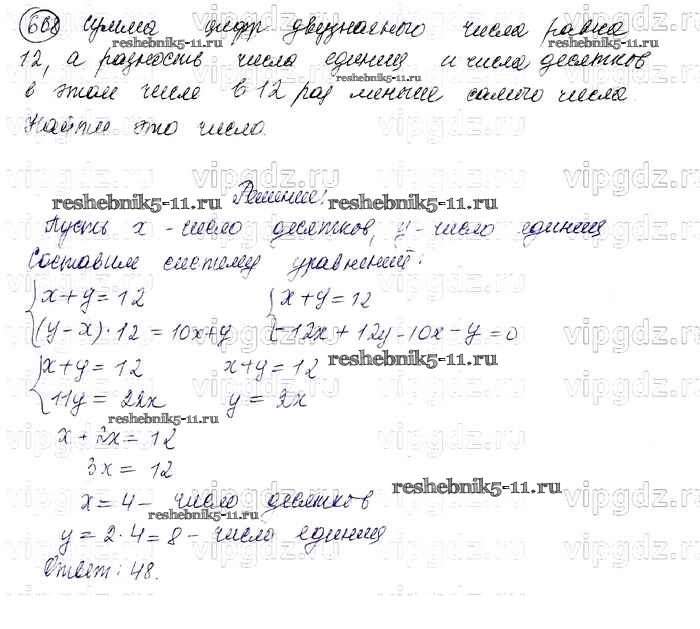 668 Сумма цифр двузначного числа равна
reshebnik5-11.ru
12, а разность числа единиц и числа десятков
reshebnik5-11.ru
в этом числе в 12 раз меньше самого числа.
Найти это число.
vipgdz.ru vipgdz.ru vipgdz.ru vipgdz.ru
Решение:
reshebnik5-11.ru reshebnik5-11.ru
Пусть x - число десятков, y - число единиц
Составим систему уравнений:
{x+y=12 {x+y=12
{(y-x)·12=10x+y {-12x+12y-10x-y=0
reshebnik5-11.ru
{x+y=12 x+y=12
{11y=22x y=2x
reshebnik5-11.ru
x+2x=12
3x=12
reshebnik5-11.ru
x=4- число десятков
reshebnik5-11.ru
y=2·4=8- число единиц
Ответ: 48.